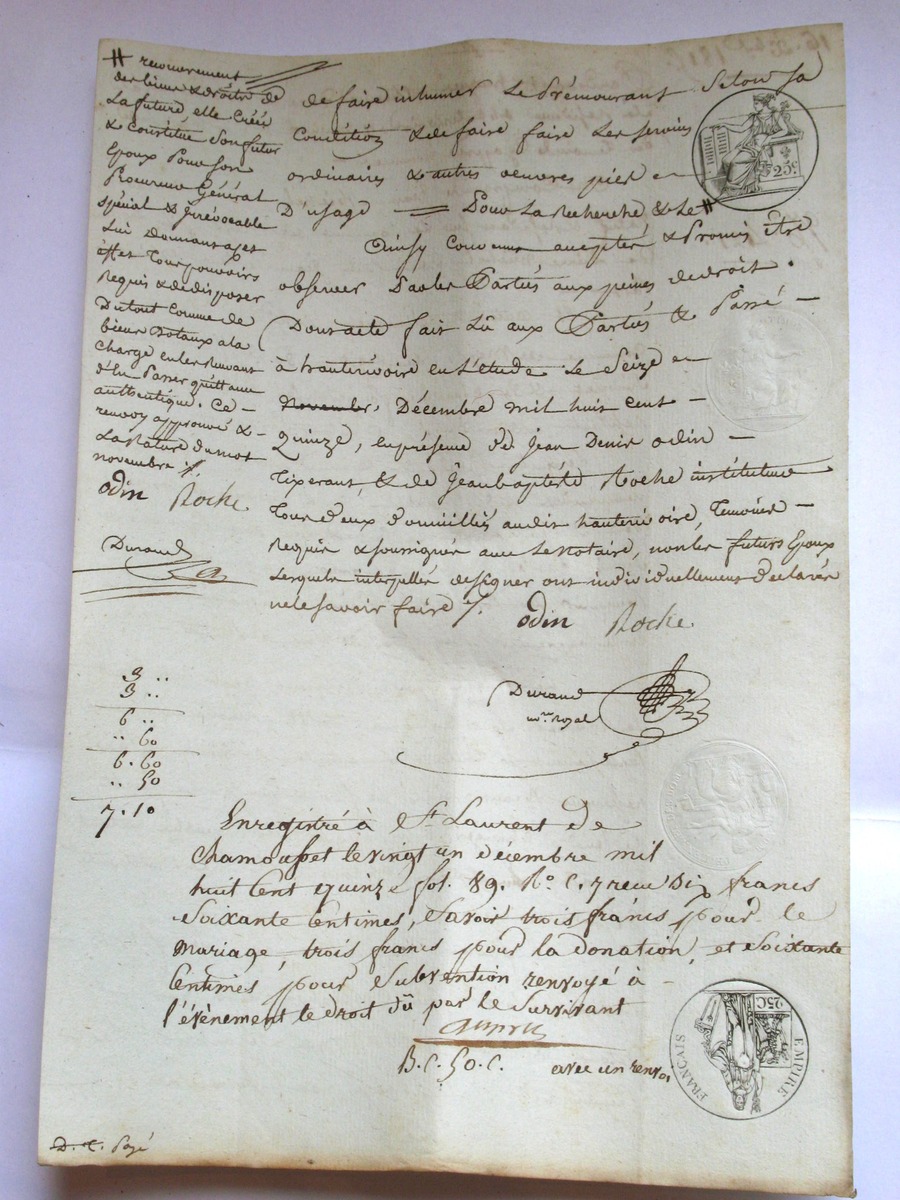 # recouvrement
des biens & droits de
La future, elle Créé
& Constitue Son futur
Epoux Pour Son
Procureur Général
Spécial & Irrévocable
Lui donnant a cet
effet Tous pouvoirs
Requis & de disposer
Du tout Comme de
biens Dotaux a la
Charge en les Recevant
d'En Passer quittance
authentique. Ce
renvoy approuvé &
La Rature du mot
novembre
odin Roche
Durand
de faire inhumer Le Prémourant Selon Sa
Condition & de faire faire Les Services
ordinaires & autres oeuvres pies en
D'usage = Pour La Recherche & Le #
Ainsy Convenu accepté & Promis Etre
observer Par les Parties aux peines de droit.
Dont acte fait Lû aux Parties & Passé
à hauterivoire en L'étude Le Seize
Novembre, Décembre mil huit cent
Quinze, en présence de Jean Denis odin
Tixerant, & de Jean baptiste Roche instituteur
Tous deux domiciliés audit hauterivoire, Temoins
Requis & soussignés avec Le Notaire, non les futurs Epoux
Lesquels interpellés de signer ont individuellement déclarés
ne le Savoir faire
odin Roche
Durand
no.re Royal
3 ..
3 ..
6 ..
.. 60
6.60
.. 50
7.10
Enregistré à St. Laurent de
Chamousset le vingt un décembre mil
huit Cent quinze fol. 89. Ro. C. 7 reçu Six francs
Soixante Centimes, Savoir trois francs pour le
Mariage, trois francs pour la donation, et Soixante
Centimes pour Subvention renvoyé à
l'évènement le droit dû par le Survivant
B.C. 50. C. avec un renvoi
D. X. Payé
25c.
EMPIRE FRANÇAIS
25C